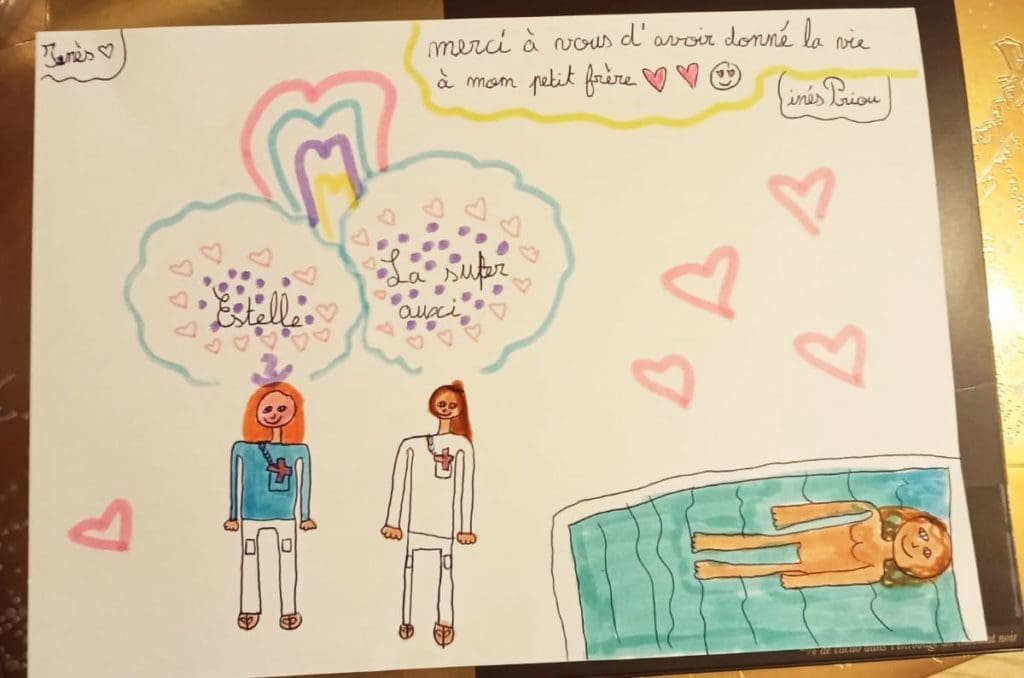 Inès ♡
merci à vous d'avoir donné la vie
à mon petit frère
inés Priou
Estelle
La super
auxi
% de cacao dans l'enrobage chocolat noir